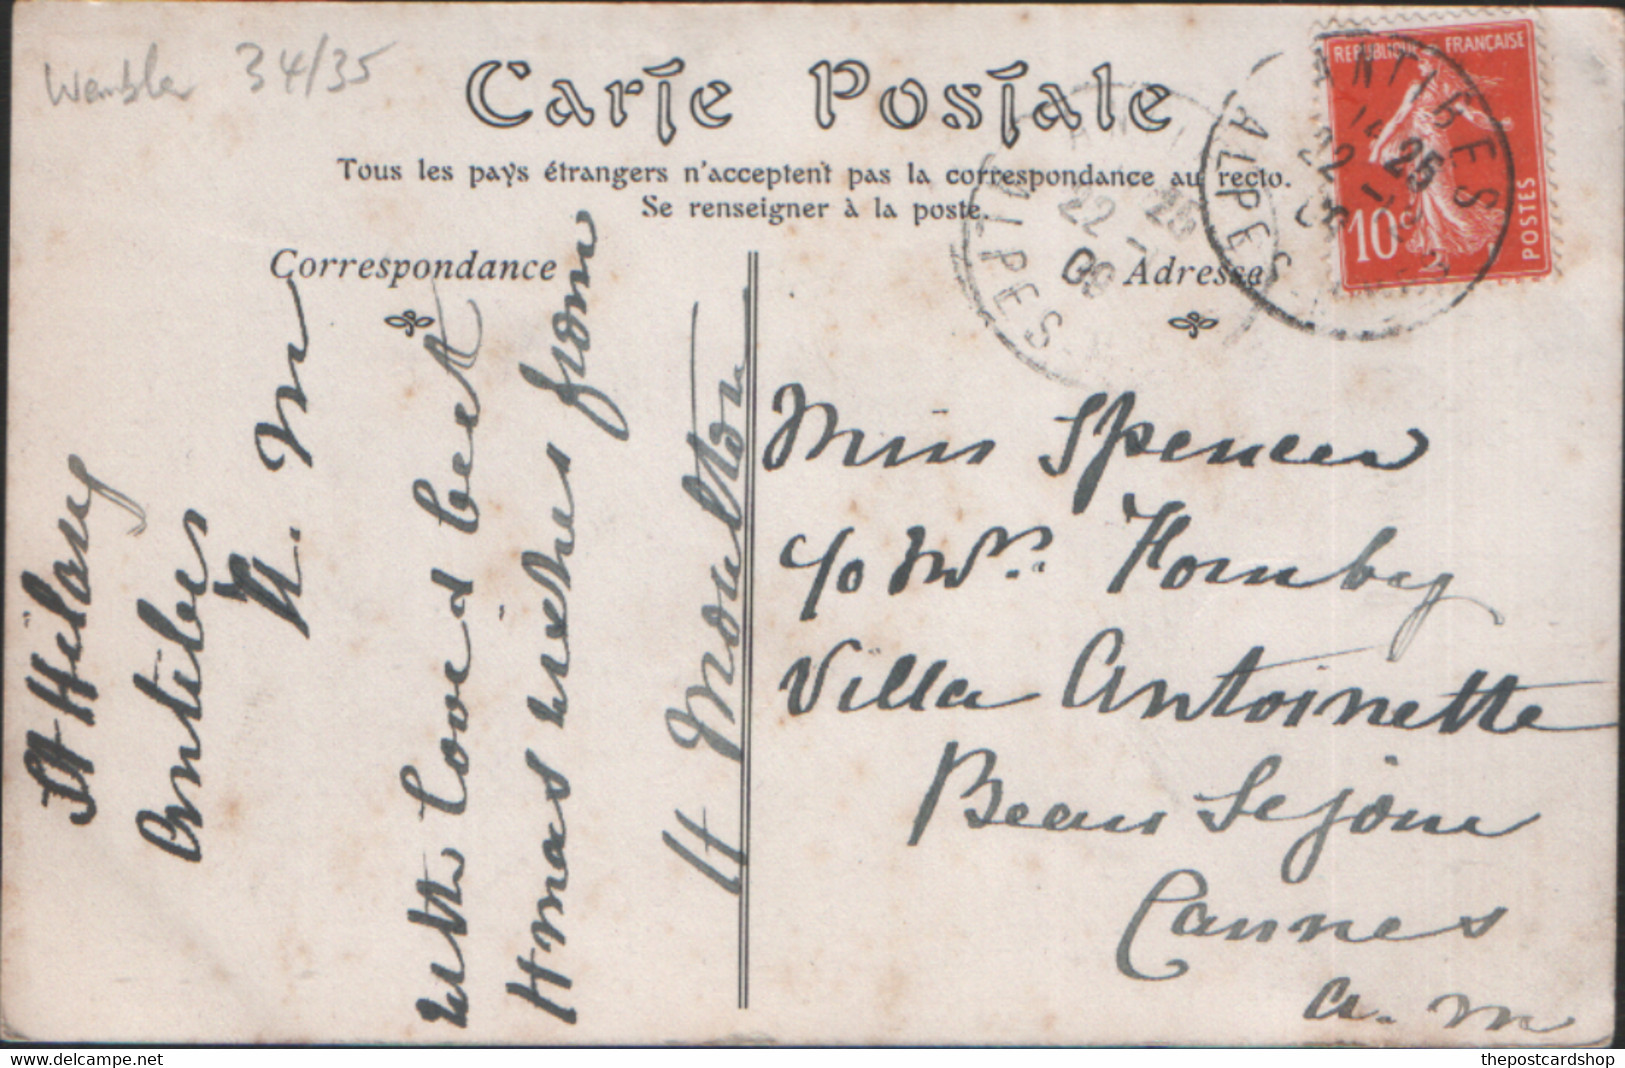 Wembley 34/35
Carte Postale
Tous les pays étrangers n'acceptent pas la correspondance au recto.
Se renseigner à la poste.
Correspondance
Adresse
REPUBLIQUE FRANÇAISE
10c
POSTES
ANTIBES
25
22
09
ALPES-M
25
22
09
ALPES-M
St Hilary
Antibes
A. M
With love & best
Xmas wishes from
H Moulton
Miss Spencer
c/o Mrs Hornby
Villa Antoinette
Beau Sejour
Cannes
A. M
thepostcardshop